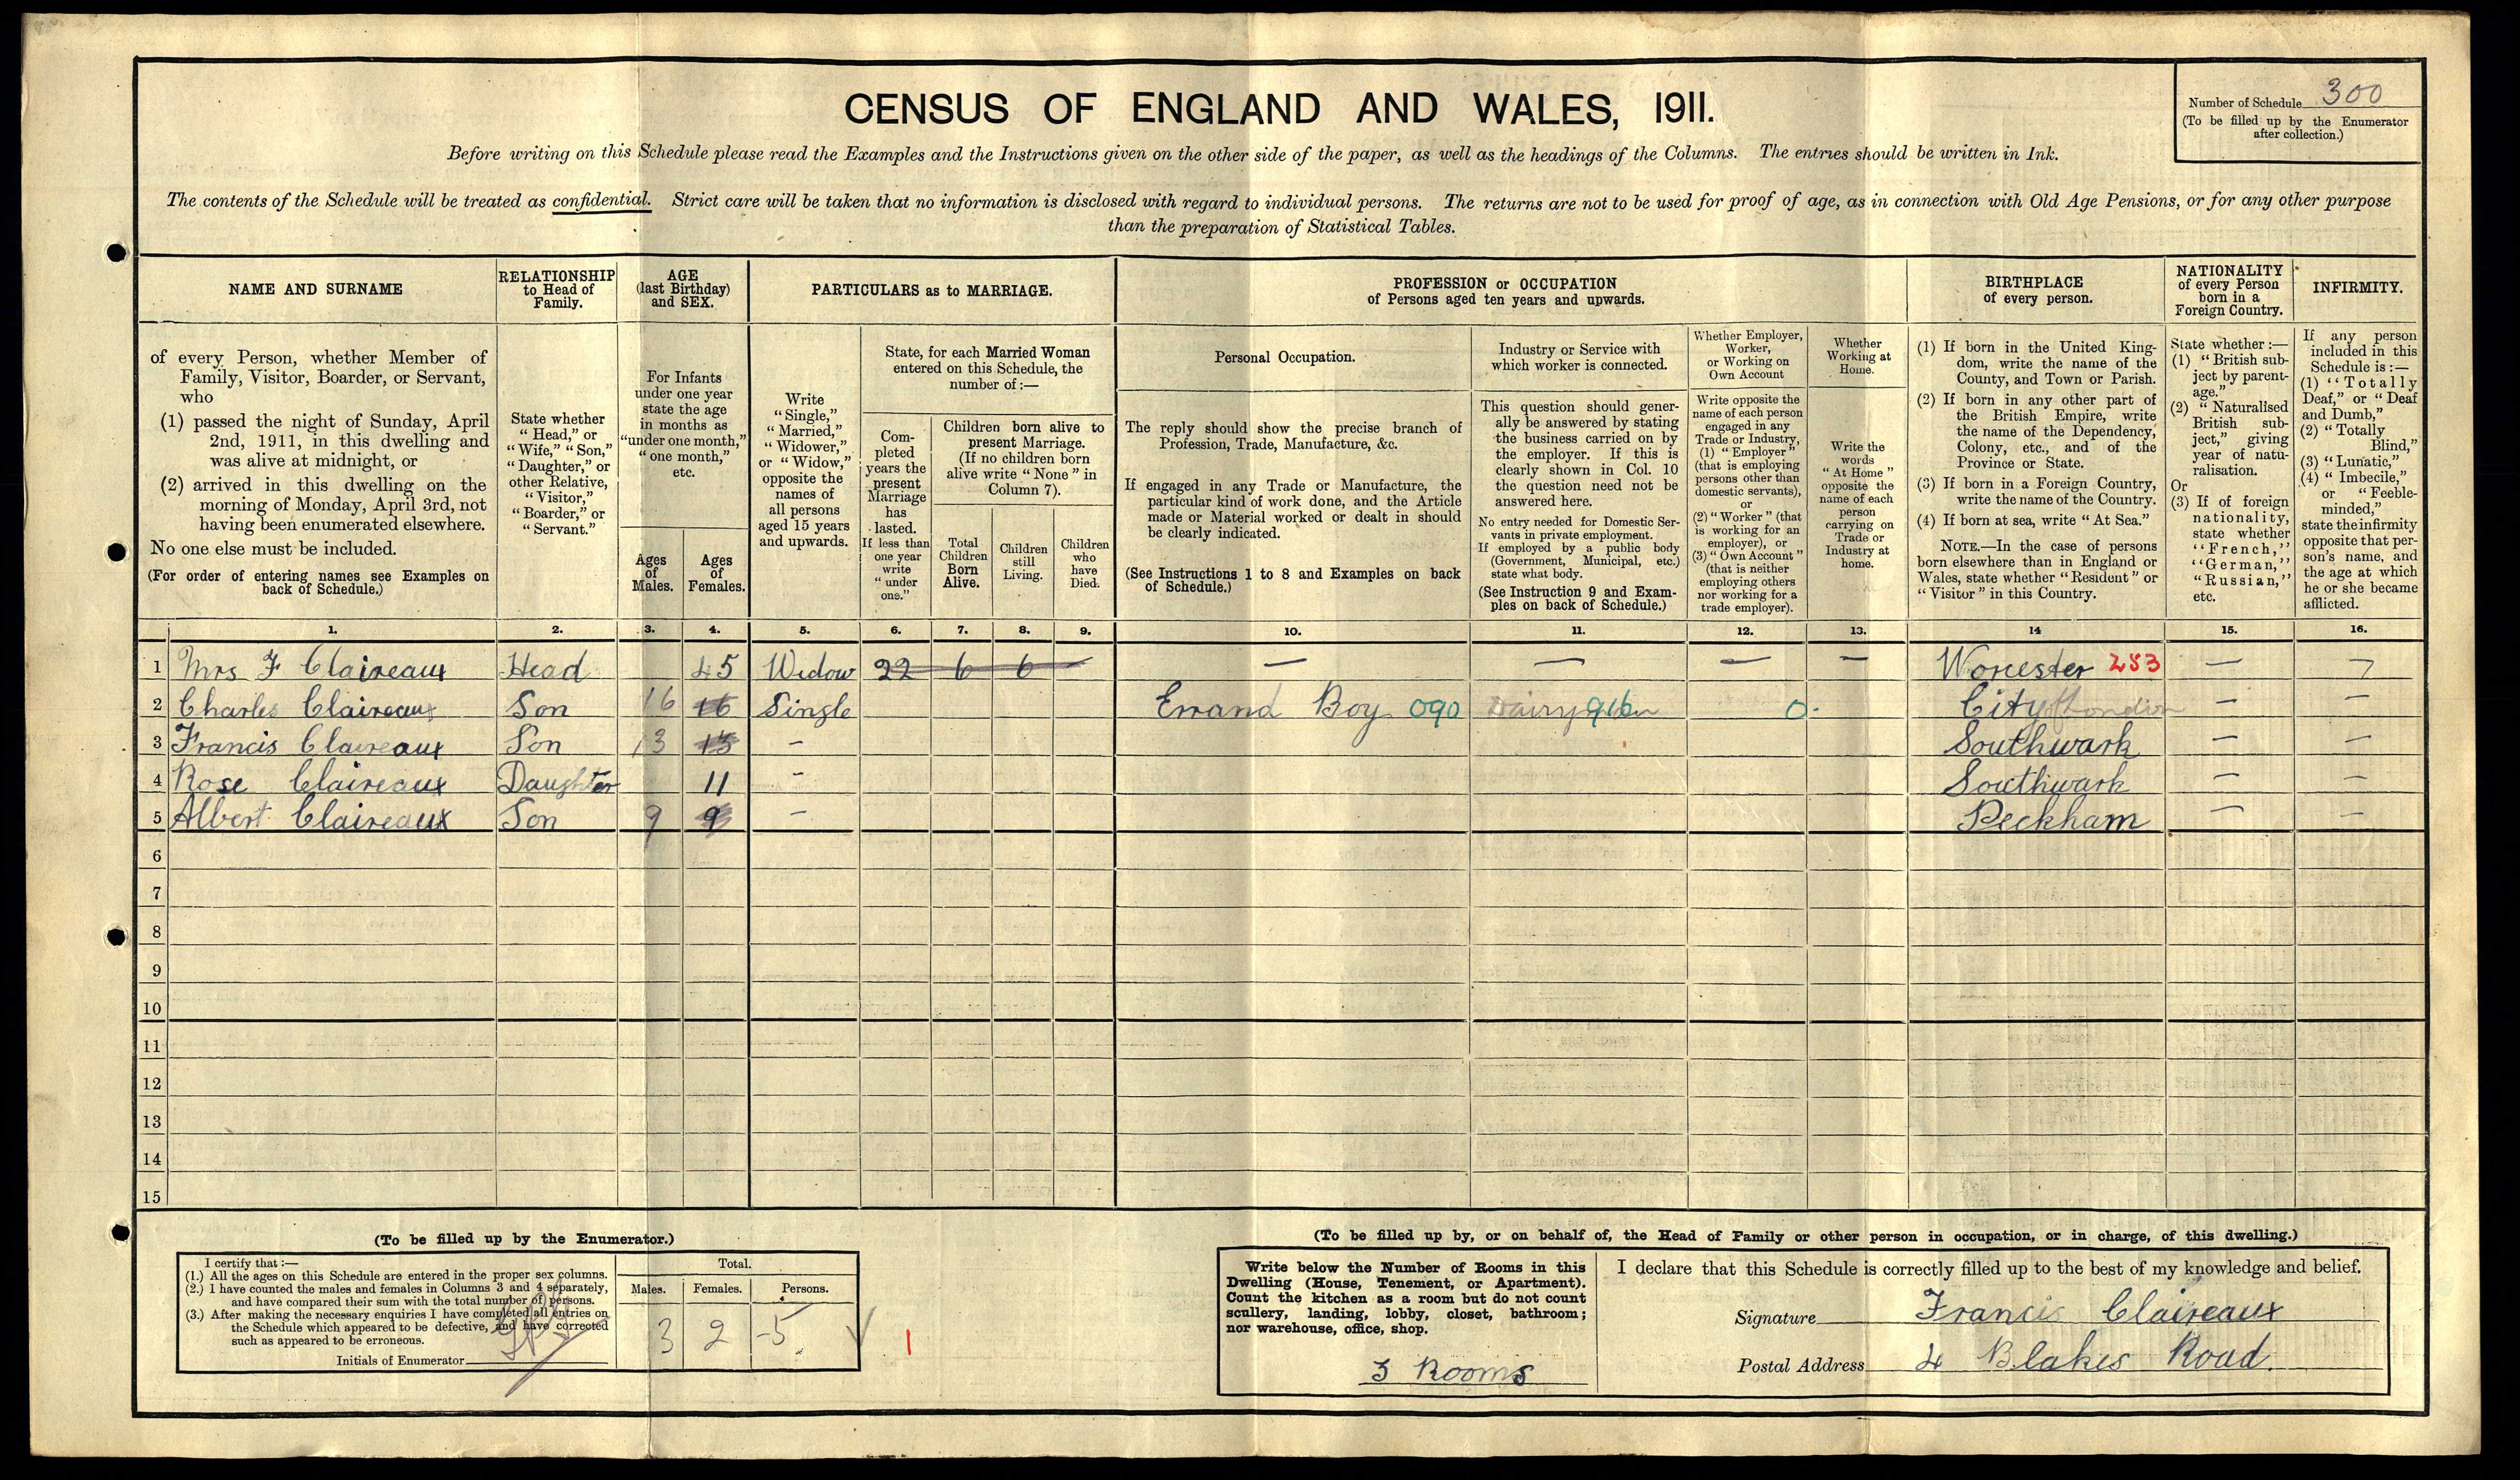 CENSUS OF ENGLAND AND WALES, 1911.
Number of Schedule 300
(To be filled up by the Enumerator
after collection.)
Before writing on this Schedule please read the Examples and the Instructions given on the other side of the paper, as well as the headings of the Columns. The entries should be written in Ink.
The contents of the Schedule will be treated as confidential. Strict care will be taken that no information is disclosed with regard to individual persons. The returns are not to be used for proof of age, as in connection with Old Age Pensions, or for any other purpose
than the preparation of Statistical Tables.
NAME AND SURNAME
of every Person, whether Member of
Family, Visitor, Boarder, or Servant,
who
(1) passed the night of Sunday, April
2nd, 1911, in this dwelling and
was alive at midnight, or
(2) arrived in this dwelling on the
morning of Monday, April 3rd, not
having been enumerated elsewhere.
No one else must be included.
(For order of entering names see Examples on
back of Schedule.)
RELATIONSHIP
to Head of
Family.
State whether
“Head,” or
“Wife,” “Son,”
“Daughter,” or
other Relative,
“Visitor,”
“Boarder,” or
“Servant.”
AGE
(last Birthday)
and SEX.
For Infants
under one year
state the age
in months as
“under one month,”
“one month,”
etc.
Ages
of
Males.
Ages
of
Females.
PARTICULARS as to MARRIAGE.
Write
“Single,”
“Married,”
“Widower,”
or “Widow,”
opposite the
names of
all persons
aged 15 years
and upwards.
State, for each Married Woman
entered on this Schedule, the
number of :—
Com-
pleted
years the
present
Marriage
has
lasted.
If less than
one year
write
“under
one.”
Children born alive to
present Marriage.
(If no children born
alive write “None” in
Column 7).
Total
Children
Born
Alive.
Children
still
Living.
Children
who
have
Died.
PROFESSION or OCCUPATION
of Persons aged ten years and upwards.
Personal Occupation.
The reply should show the precise branch of
Profession, Trade, Manufacture, &c.
If engaged in any Trade or Manufacture, the
particular kind of work done, and the Article
made or Material worked or dealt in should
be clearly indicated.
(See Instructions 1 to 8 and Examples on back
of Schedule.)
Industry or Service with
which worker is connected.
This question should gener-
ally be answered by stating
the business carried on by
the employer. If this is
clearly shown in Col. 10
the question need not be
answered here.
No entry needed for Domestic Ser-
vants in private employment.
If employed by a public body
(Government, Municipal, etc.)
state what body.
(See Instruction 9 and Exam-
ples on back of Schedule.)
Whether Employer,
Worker,
or Working on
Own Account
Write opposite the
name of each person
engaged in any
Trade or Industry,
(1) “Employer”
(that is employing
persons other than
domestic servants),
or
(2) “Worker” (that
is working for an
employer), or
(3) “Own Account”
(that is neither
employing others
nor working for a
trade employer).
Whether
Working at
Home.
Write the
words
“At Home”
opposite the
name of each
person
carrying on
Trade or
Industry at
home.
BIRTHPLACE
of every person.
(1) If born in the United King-
dom, write the name of the
County, and Town or Parish.
(2) If born in any other part of
the British Empire, write
the name of the Dependency,
Colony, etc., and of the
Province or State.
(3) If born in a Foreign Country,
write the name of the Country.
(4) If born at sea, write “At Sea.”
NOTE.—In the case of persons
born elsewhere than in England or
Wales, state whether “Resident” or
“Visitor” in this Country.
NATIONALITY
of every Person
born in a
Foreign Country.
State whether :—
(1) “British sub-
ject by parent-
age.”
(2) “Naturalised
British sub-
ject,” giving
year of natu-
ralisation.
Or
(3) If of foreign
nationality,
state whether
“French,”
“German,”
“Russian,”
etc.
INFIRMITY.
If any person
included in this
Schedule is :—
(1) “Totally
Deaf,” or “Deaf
and Dumb,”
(2) “Totally
Blind,”
(3) “Lunatic,”
(4) “Imbecile,”
or “Feeble-
minded,”
state the infirmity
opposite that per-
son's name, and
the age at which
he or she became
afflicted.
1. 2. 3. 4. 5. 6. 7. 8. 9. 10. 11. 12. 13. 14 15. 16.
1 Mrs F Claireaux Head 45 Widow 22 6 6 — — — — — Worcester 253 — —
2 Charles Claireaux Son 16 16 Single Errand Boy 090 Dairy 916 0. City of London — —
3 Francis Claireaux Son 13 13 — Southwark — —
4 Rose Claireaux Daughter 11 — Southwark — —
5 Albert Claireaux Son 9 9 — Peckham — —
6
7
8
9
10
11
12
13
14
15
(To be filled up by the Enumerator.)
I certify that :—
(1.) All the ages on this Schedule are entered in the proper sex columns.
(2.) I have counted the males and females in Columns 3 and 4 separately,
and have compared their sum with the total number of persons.
(3.) After making the necessary enquiries I have completed all entries on
the Schedule which appeared to be defective, and have corrected
such as appeared to be erroneous.
Initials of Enumerator
Total.
Males. Females. Persons.
3 2 5
(To be filled up by, or on behalf of, the Head of Family or other person in occupation, or in charge, of this dwelling.)
Write below the Number of Rooms in this
Dwelling (House, Tenement, or Apartment).
Count the kitchen as a room but do not count
scullery, landing, lobby, closet, bathroom;
nor warehouse, office, shop.
3 Rooms
I declare that this Schedule is correctly filled up to the best of my knowledge and belief.
Signature Francis Claireaux
Postal Address 4 Blakes Road.